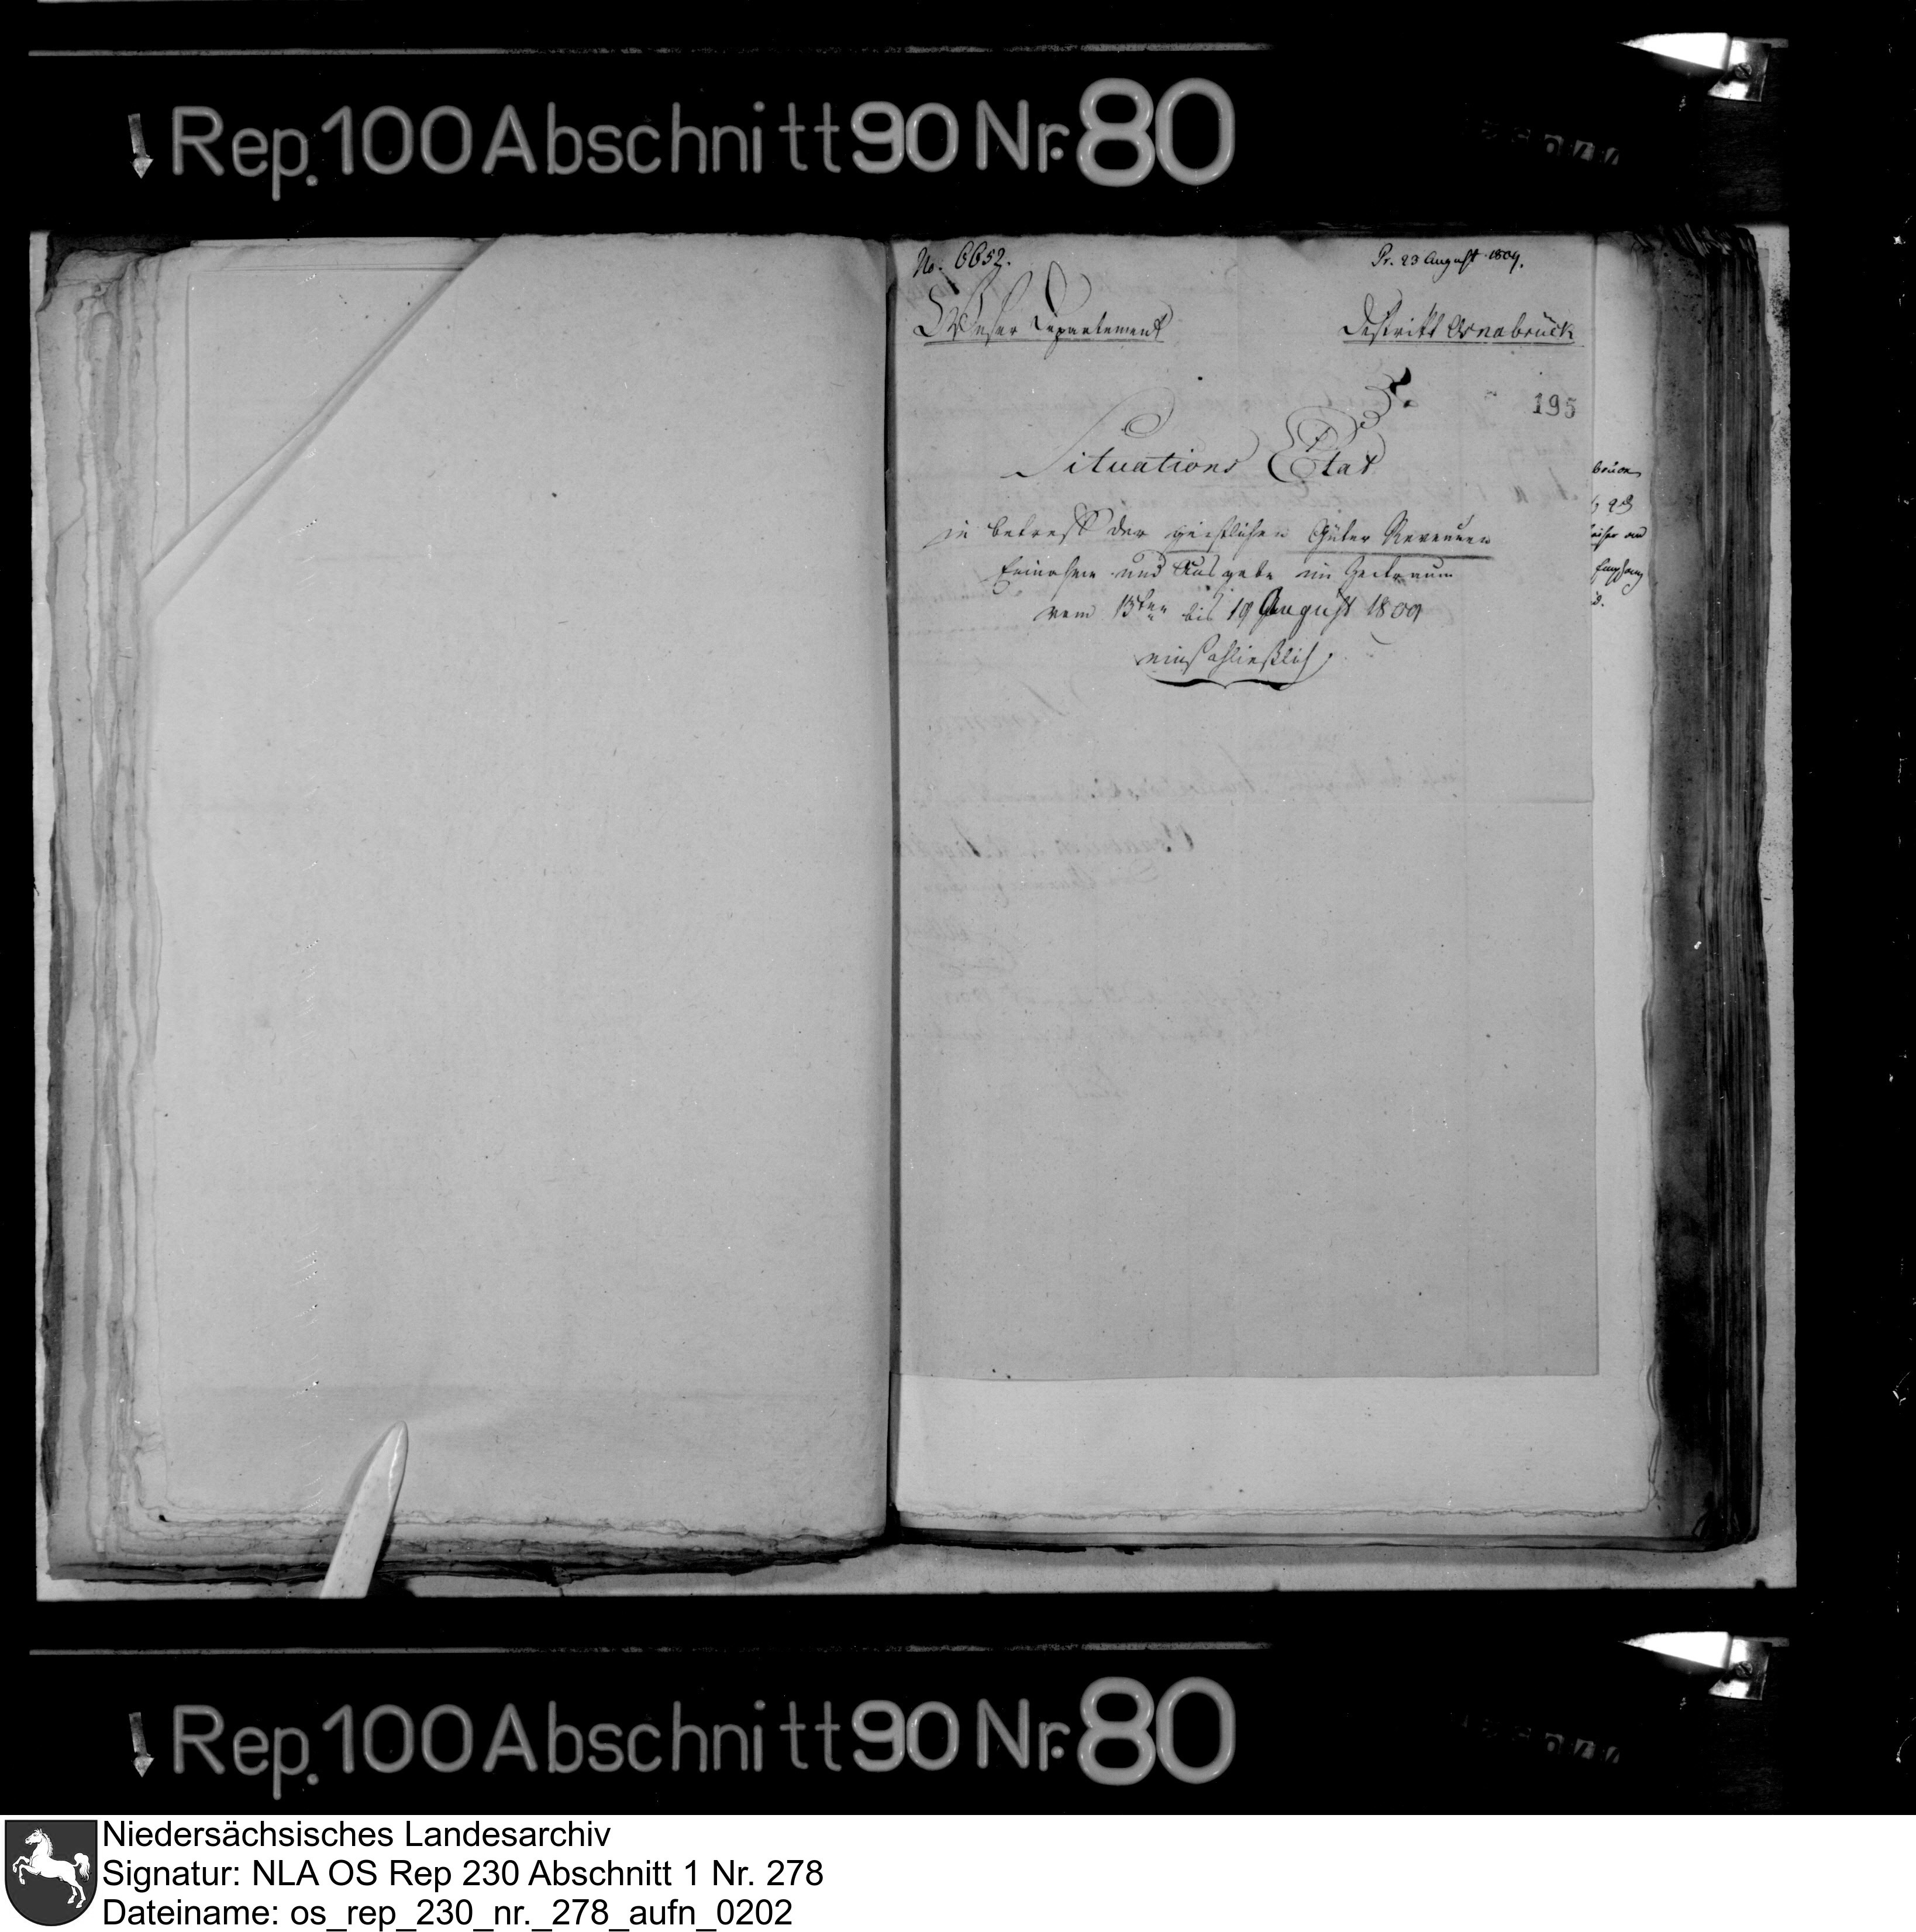 Rep. 100 Abschnitt 90 Nr. 80
No. 6652.
Pr. 23 August 1809.
Weser Departement
Distrikt Osnabrück
195
Situations Etat
in betreff der geistlichen Güter Revenüen
Einnahme und Ausgabe im Zeitraum
vom 13ten bis 19 August 1809
einschließlich
Rep. 100 Abschnitt 90 Nr. 80
Niedersächsisches Landesarchiv
Signatur: NLA OS Rep 230 Abschnitt 1 Nr. 278
Dateiname: os_rep_230_nr._278_aufn_0202